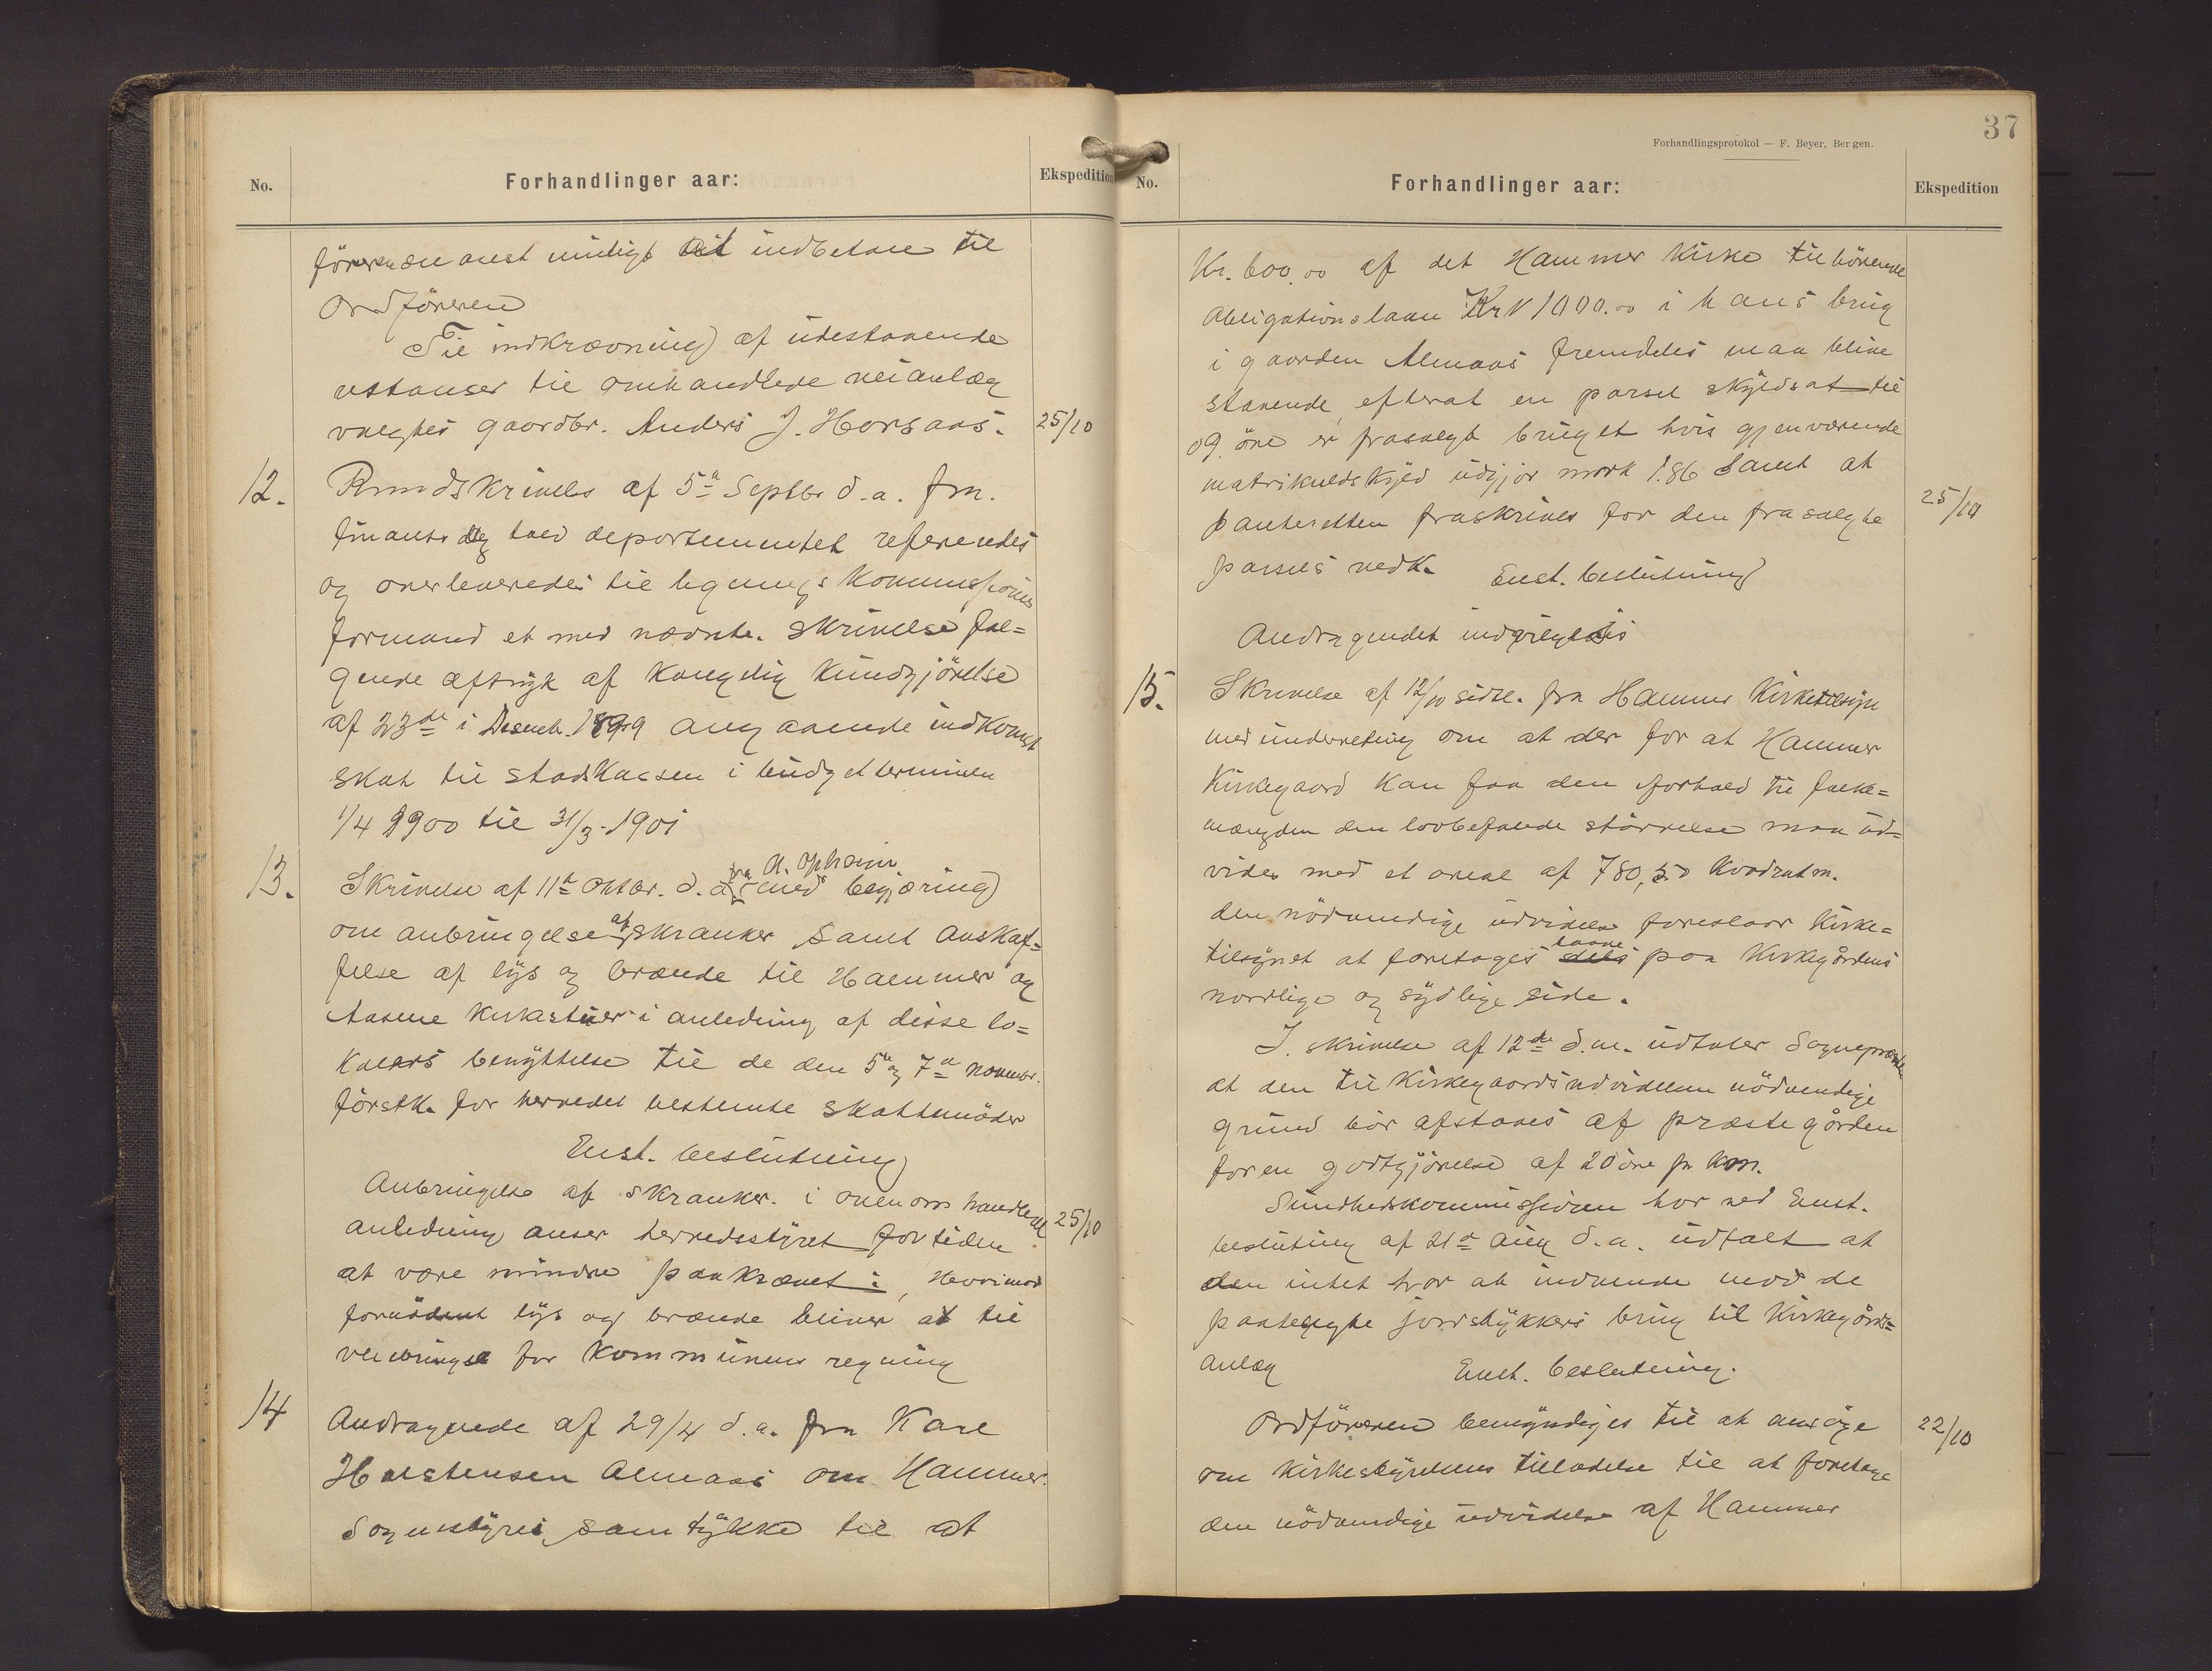 No.
Forhandlinger aar:
Ekspedition
snarest muligt at indbetale til
Ordföreren
Til indkrævning af udestaaende
restanser til omhandlede veianlæg
valgtes gaardbr. Anders J. Horsaas.
25/10
12.
Rundskrivelse af 5te Septbr d.a. fra
finants og told departementet refereredes
og overleveredes til lignings kommissionens
formand et med nævnte skrivelse föl=
gende aftryk af Kongelig Kundgjörelse
af 23de i Desemb. 1899 angaaende indkomst
skat til statskassen i budgetterminen
1/4 1900 til 31/3-1901
13.
Skrivelse af 11te Oktbr. d.a. fra A. Opheim med begjæring
om anbringelse af skranker samt anskaf=
felse af lys og brænde til Hammer og
Aasene Kirkestuer i anledning af disse lo=
kalers benyttelse til de den 5te og 7de novembr.
förstk. for herredet bestemte skattemöder
Enst. beslutning
Anbringelse af skranker i ovenomhandlede
anledning anser herredsstyret for tiden
at være mindre paakrævet: Hvorimod
fornödent lys og brænde bliver at til
veiebringe for Kommunens regning
25/10
14
Andragende af 29/4 d.a. fra Karl
Halstensen Almaas om Hammer
Sognestyres samtykke til at
37
Forhandlingsprotokol — F. Beyer, Bergen.
No.
Forhandlinger aar:
Ekspedition
Kr. 600.00 af det Hammer Kirke tilhörende
Obligationslaan Kr 1000.00 i hans brug
i gaarden Almaas fremdeles maa blive
staaende efterat en parsel skyldsat til
09 öre er frasolgt bruget hvis gjenværende
matrikulskyld udgjör mark 1.86 samt at
panteretten fraskrives for den frasolgte
parsels vedk. Enst. beslutning
25/10
Andragendet indvilgedes
15.
Skrivelse af 12/10 sidstl. fra Hammer Kirketilsyn
med underretning om at der for at Hammer
Kirkegaard kan faa den i forhold til folke=
mængden den lovbefalede störrelse maa ud=
vides med et areal af 780,50 Kvadratm.
den nödvendige udvidelse foreslaar Kirke=
tilsynet at foretages paa Kirkegårdens
nordlige og sydlige side.
I skrivelse af 12de d.m. udtaler Sognepræsten
at den til Kirkegaardsudvidelsen nödvendige
grund bör afstaaes af præstegården
for en godtgjörelse af 20 öre pr kvm.
Sundhedskommissionen har ved Enst.
beslutning af 21de Aug d.a. udtalt at
den intet har at indvende mod de
paatægte jordstykkers brug til Kirkegårds=
anlæg Enst. beslutning.
Ordföreren bemyndiges til at ansöge
om Kirkestyrelsens tilladelse til at foretage
den nödvendige udvidelse af Hammer
22/10